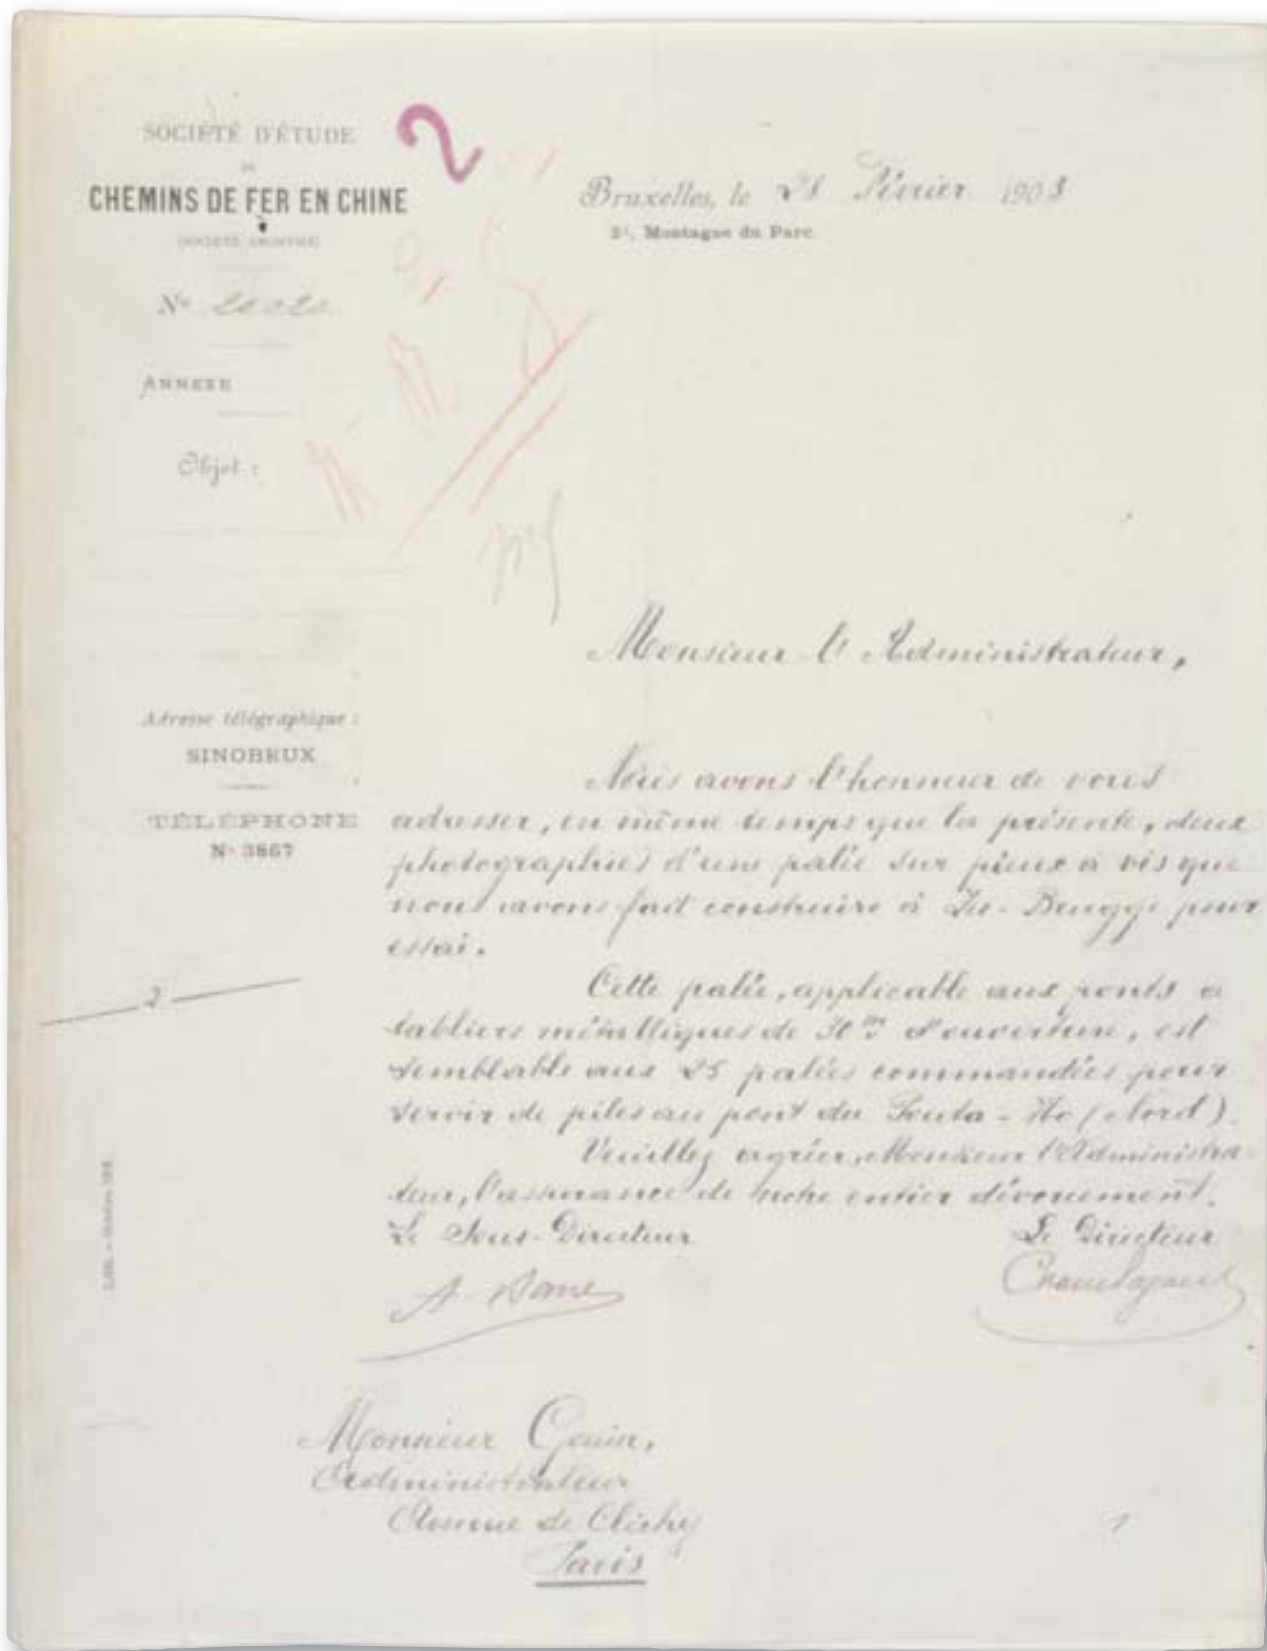 SOCIÉTÉ D'ÉTUDE
DE
CHEMINS DE FER EN CHINE
(SOCIÉTÉ ANONYME)
2
Bruxelles, le 28 Février 1903
Montagne du Parc
No
ANNEXE
Objet :
Monsieur l'Administrateur,
Adresse télégraphique :
SINOBRUX
TÉLÉPHONE
No 3867
Nous avons l'honneur de vous
adresser, en même temps que la présente, deux
photographies d'une palée sur pieux à vis que
nous avons fait construire à pour
essai.
2
Cette palée, applicable aux ponts à
tabliers métalliques de 30m d'ouverture, est
semblable aux 25 palées commandées pour
servir de piles au pont du Ho (Nord).
Veuillez agréer, Monsieur l'Administra-
teur, l'assurance de notre entier dévouement.
Le Sous-Directeur
Le Directeur
A.
Monsieur Gouin,
Administrateur
Avenue de Clichy
Paris